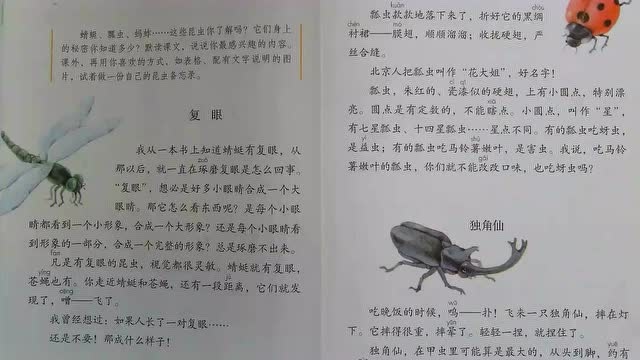 蜻蜓、瓢虫、蚂蚱……这些昆虫你了解吗？它们身上
的秘密你知道多少？默读课文，说说你最感兴趣的内容。
课外，再用你喜欢的方式，如表格、配有文字说明的图
片，试着做一份自己的昆虫备忘录。
复眼
我从一本书上知道蜻蜓有复眼，从
zuó
那以后，就一直在琢磨复眼是怎么回事。
“复眼”，想必是好多小眼睛合成一个大
眼睛。那它怎么看东西呢？是每个小眼
睛都看到一个小形象，合成一个大形象？还是每个小眼睛看
到形象的一部分，合成一个完整的形象？总是琢磨不出来。
凡是有复眼的昆虫，视觉都很灵敏。蜻蜓就有复眼，
yíng
苍蝇也有。你走近蜻蜓和苍蝇，还有一段距离，它们就发
cēng
现了，噌——飞了。
我曾经想过：如果人长了一对复眼……
还是不要！那成什么样子！
kuǎn
瓢虫款款地落下来了，折好它的黑绸
chèn
衬裙——膜翅，顺顺溜溜；收拢硬翅，严
丝合缝。
北京人把瓢虫叫作“花大姐”，好名字！
瓢虫，朱红的、瓷漆似的硬翅，上有小圆点，特别漂
xiā
亮。圆点是有定数的，不能瞎点。小圆点，叫作“星”，
有七星瓢虫、十四星瓢虫……星点不同。有的瓢虫吃蚜虫，
是益虫；有的瓢虫吃马铃薯嫩叶，是害虫。我说，吃马铃
薯嫩叶的瓢虫，你们就不能改改口味，也吃蚜虫吗？
独角仙
wū
吃晚饭的时候，呜——扑！飞来一只独角仙，摔在灯
yūn
下。它摔得很重，摔晕了。轻轻一捏，就捏住了。
独角仙，在甲虫里可能算是最大的，从头到脚，约有